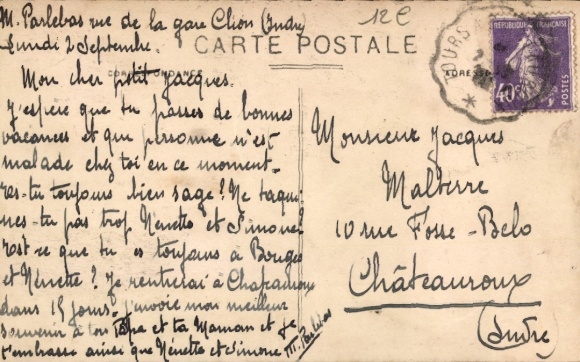 M. Parlebas rue de la gare Clion (Indre)
Lundi 2 Septembre.
12€
CARTE POSTALE
CORRESPONDANCE
ADRESSE
TOURS
RÉPUBLIQUE FRANÇAISE
40c
POSTES
Mon cher petit Jacques.
J'espère que tu passes de bonnes
vacances et que personne n'est
malade chez toi en ce moment.
Es-tu toujours bien sage? Ne taqui
nes-tu pas trop Nénette et Simone?
Est-ce que tu es toujours à
et Nénette? Je rentrerai à Chateauroux
dans 15 jours. J'envoie mon meilleur
souvenir à ton Papa et ta Maman et je
t'embrasse ainsi que Nénette et Simone
M. Parlebas
Monsieur Jacques
Malterre
10 rue Fosse-Belo
Châteauroux
(Indre)